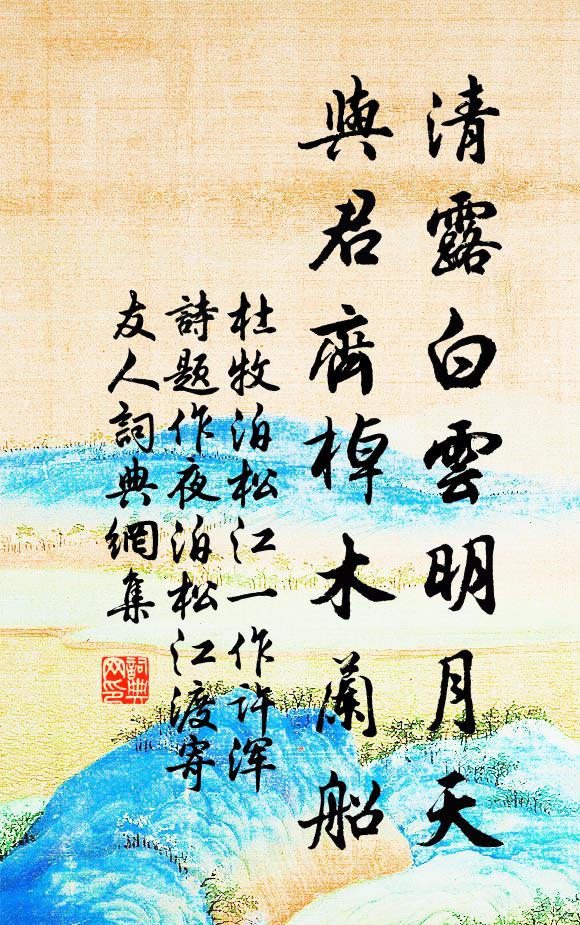 清露白雲明月天
與君齊棹木蘭船
杜牧泊松江一作許浑
詩題作夜泊松江渡寄
友人詞典網集
詞典
网印